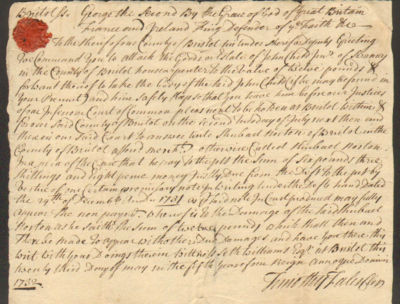 Bristol ss. George the Second By the Grace of God of Great Britain
France and Ireland King Defender of ye Faith &ca
To the Sheriff of our County of Bristol his under Sheriff or Deputy Greeting
We Command You to attach the Goods or Estate of John
in the County of Bristol housecarpenter to the value of twelve pounds &
for want thereof to take the Body of the said John Child (if he may be found in
Your Precinct) and him Safely keep so that you have him before our Justices
of our Inferiour Court of Common pleas next to be holden at Bristol Within &
for our said County of Bristol on the second tuesday of July next then and
there in our said Court to answer unto Shubael Norton of Bristol in the
County of Bristol otherwise called Shubael Norton
In a plea of the Case that he pay to the plt the Sum of Six pounds three
shillings and eight pence money Justly Due from the Deft to the plt by
Vertue of one Certain promissory note in writing under the Defts hand dated
the 29th of Decemb. Ano 1731 as in and by said note in Court produced may fully
appear the non payment whereof is to the Dammage of the said Shubael
Norton as he saith the Sum of twelve pounds which shall then and
there be made to appear with other Due Damages and have you there this
writ with your Doings therein Wittness Seth Williams Esqr at Bristol this
twenty third Day of may in the fifth year of our Reign annoque Domini
1732
Timothy Fales Cler